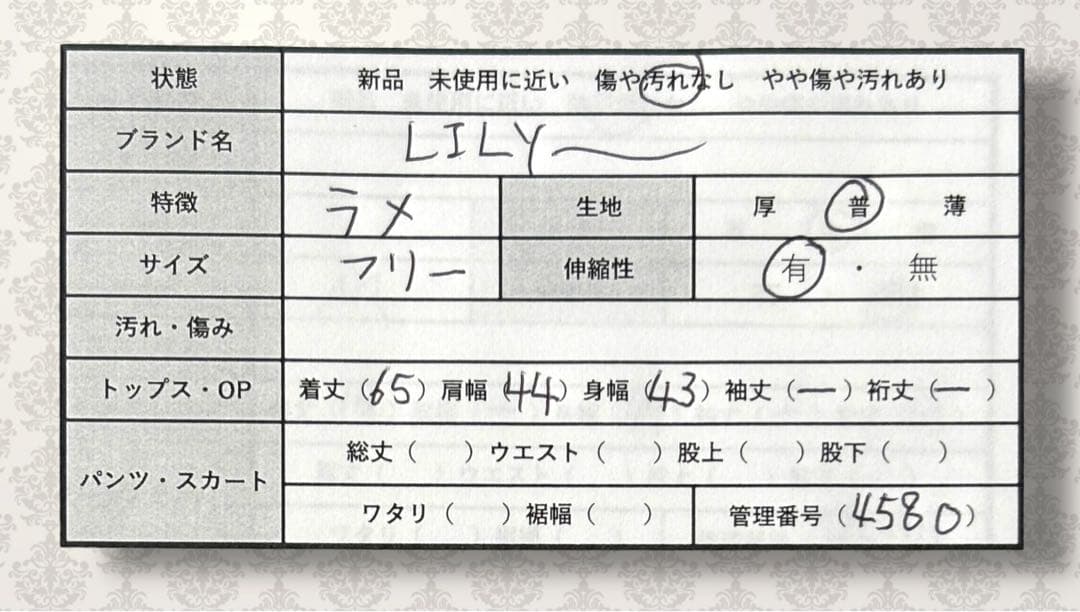 状態 新品 未使用に近い 傷や汚れなし やや傷や汚れあり
ブランド名 LILY
特徴 ラメ 生地 厚 普 薄
サイズ フリー 伸縮性 有 ・ 無
汚れ・傷み
トップス・OP 着丈（65）肩幅（44）身幅（43）袖丈（ー）裄丈（ー）
パンツ・スカート 総丈（ ）ウエスト（ ）股上（ ）股下（ ）
ワタリ（ ）裾幅（ ） 管理番号（4580）